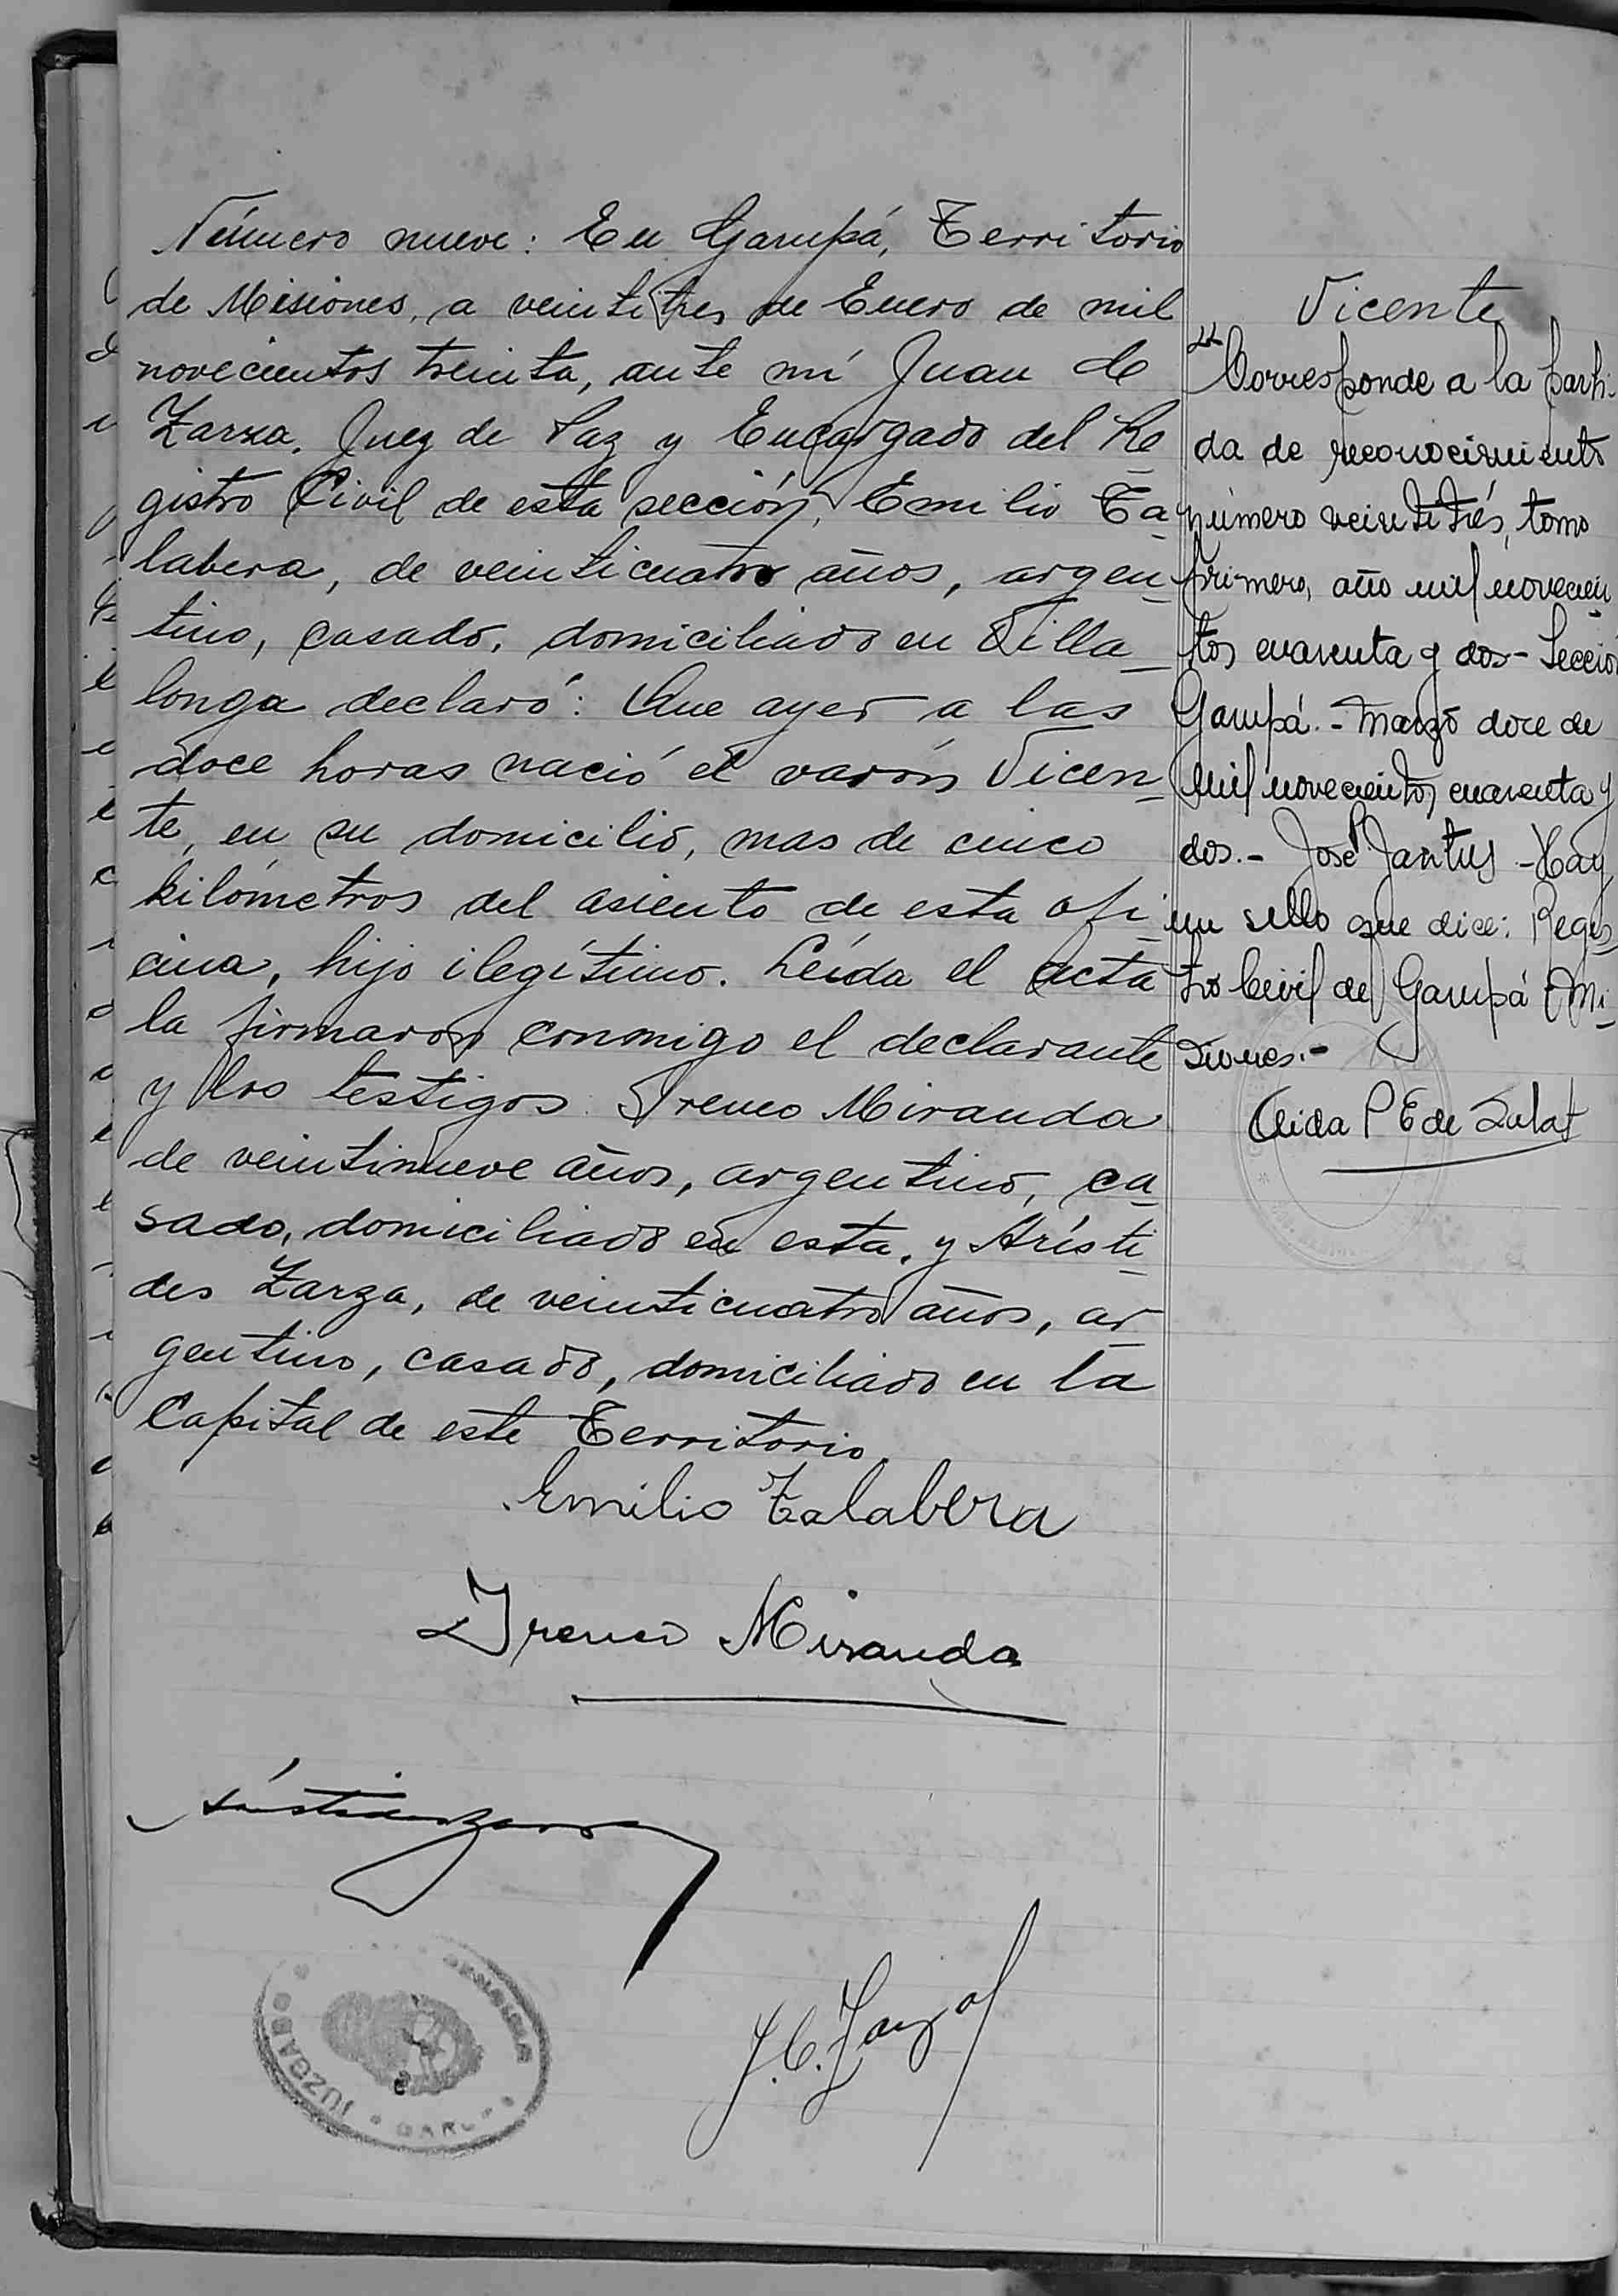 Número nueve: En Garupá, Territorio
de Misiones, a veintitres de Enero de mil
novecientos treinta, ante mí Juan C
Zarza, Juez de Paz y Encargado del Re
gistro Civil de esta sección, Emilio Ta
labera, de veinticuatro años, argen
tino, casado, domiciliado en Villa
longa declaró: Que ayer a las
doce horas nació el varón Vicen
te, en su domicilio, mas de cinco
kilómetros del asiento de esta ofi
cina, hijo ilegítimo. Leída el acta
la firmaron conmigo el declarante
y los testigos Ireneo Miranda
de veintinueve años, argentino, ca
sado, domiciliado en esta, y Arísti
des Zarza, de veinticuatro años, ar
gentino, casado, domiciliado en la
Capital de este Territorio
Emilio Talabera
Ireneo Miranda
Arístides Zarza
J. C. Zarza
JUZGADO
GARUPA
Vicente
Corresponde a la parti-
da de reconocimiento
número veintitrés, tomo
primero, año mil novecien
tos cuarenta y dos - Sección
Garupá. - Marzo doce de
mil novecientos cuarenta y
dos. - José Jantus - Hay
un sello que dice: Regis
tro Civil de Garupá - Mi-
siones. -
Aida P E de